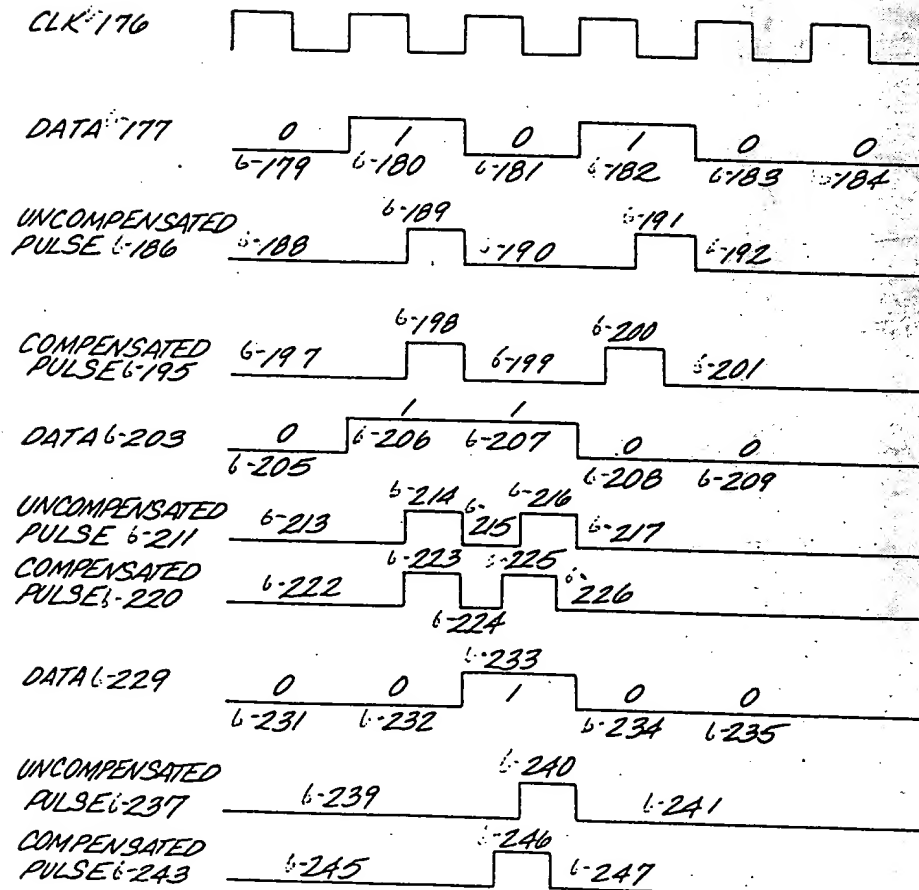 CLK 176
DATA 177
0 1 0 1 0 0
6-179 6-180 6-181 6-182 6-183 6-184
6-189 6-191
UNCOMPENSATED
PULSE 6-186
6-188 6-190 6-192
6-198 6-200
COMPENSATED
PULSE 6-195
6-197 6-199 6-201
1 1
DATA 6-203
0 6-206 6-207 0 0
6-205 6-208 6-209
6-214 6- 6-216
UNCOMPENSATED
PULSE 6-211
6-213 215 6-217
6-223 6-225
COMPENSATED
PULSE 6-220
6-222 6-
226
6-224
6-233
DATA 6-229
0 0 1 0 0
6-231 6-232 6-234 6-235
6-240
UNCOMPENSATED
PULSE 6-237
6-239 6-241
6-246
COMPENSATED
PULSE 6-243
6-245 6-247